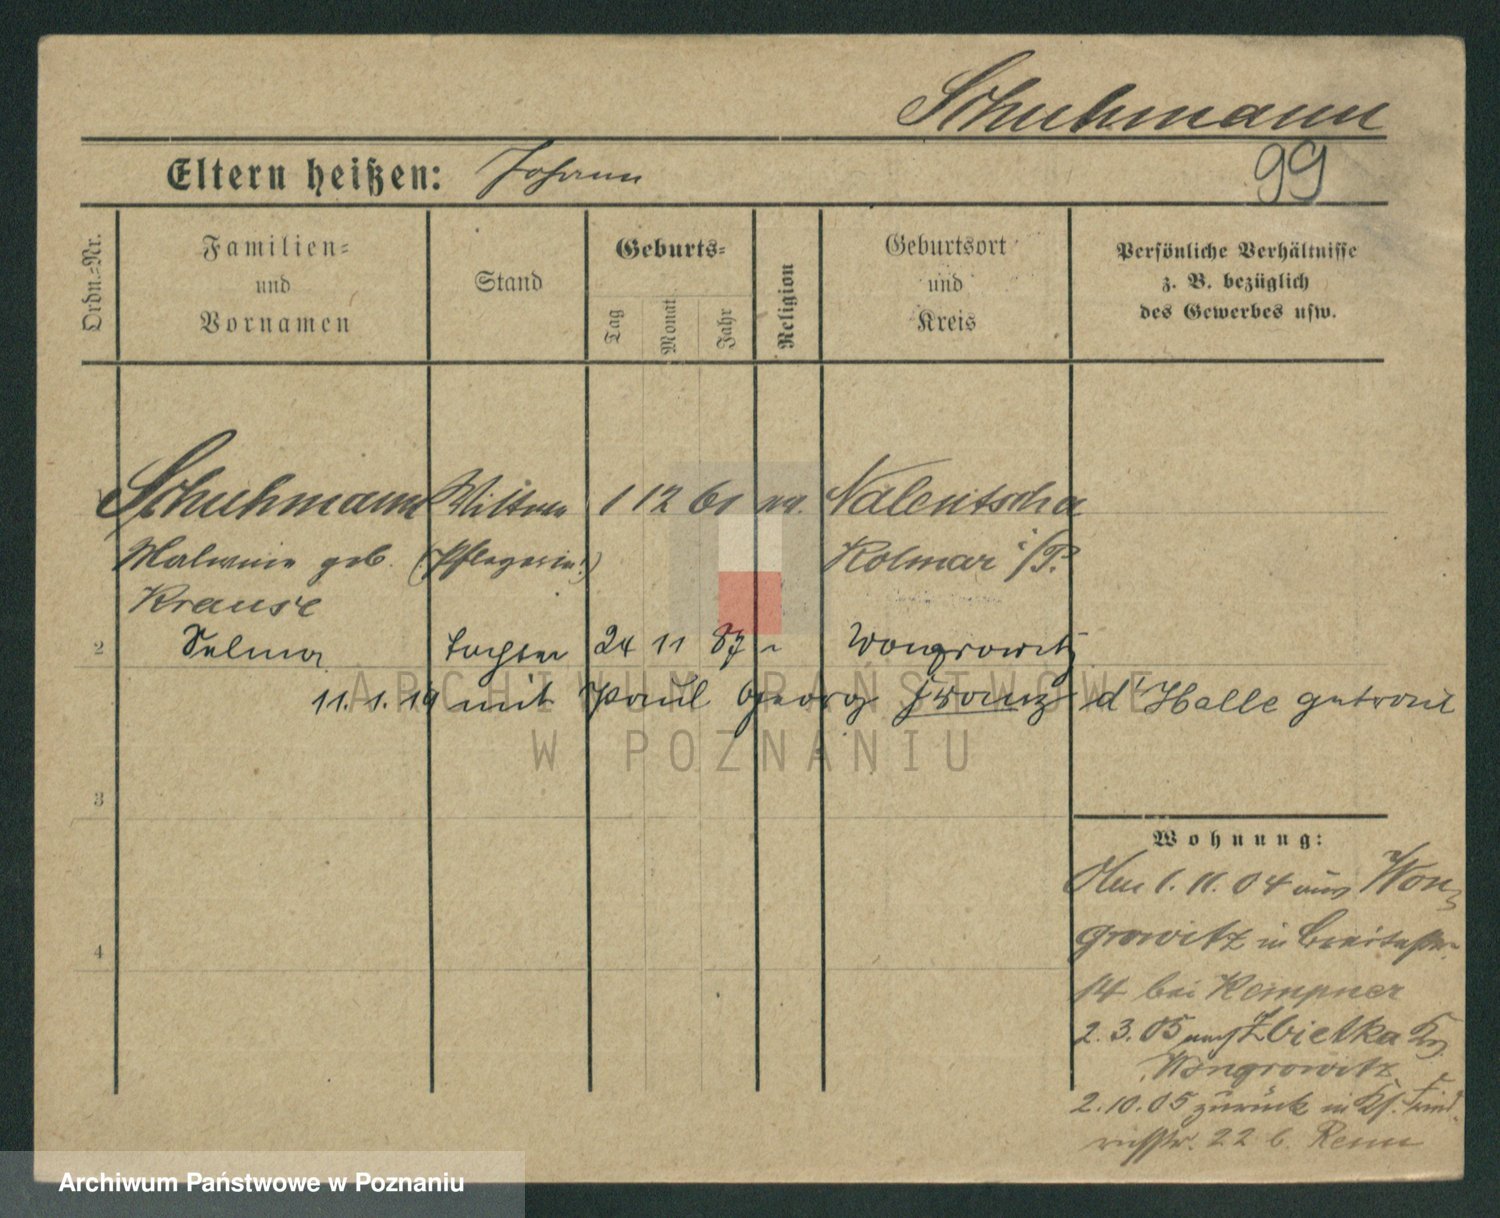 Schuhmann
Eltern heißen: Johann
99
Ordn.-Nr.
Familien-
und
Vornamen
Stand
Geburts-
Tag
Monat
Jahr
Religion
Geburtsort
und
Kreis
Persönliche Verhältnisse
z. B. bezüglich
des Gewerbes usw.
1 Schuhmann Wittwe 1 12 61 ev. Nalentscha
Malwine geb. (Pflegerin!) Kolmar i/P.
Krause
2 Selma Tochter 24 11 87 " Wongrowitz
11.1.19 mit Paul Georg Franz d' Halle getraut
3
4
Wohnung:
Am 1.11.04 aus Won-
growitz in Breitestr.
14 bei Kempner
2.3.05 nach Zbietka Krs.
Wongrowitz
2.10.05 zurück in Fried-
richstr. 22 b. Renn
ARCHIWUM PAŃSTWOWE
W POZNANIU
Archiwum Państwowe w Poznaniu